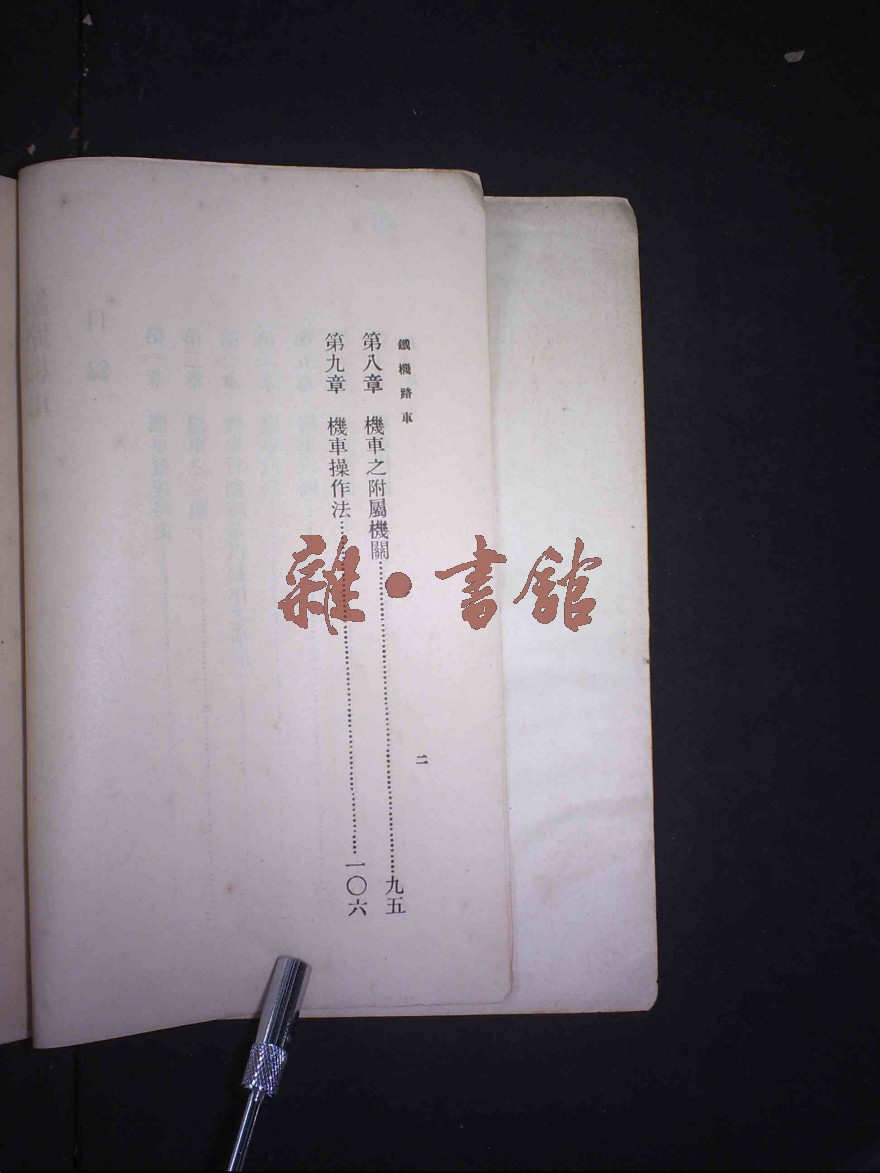 鐵機路車
二
第八章　機車之附屬機關……九五
第九章　機車操作法……一〇六
雜•書館